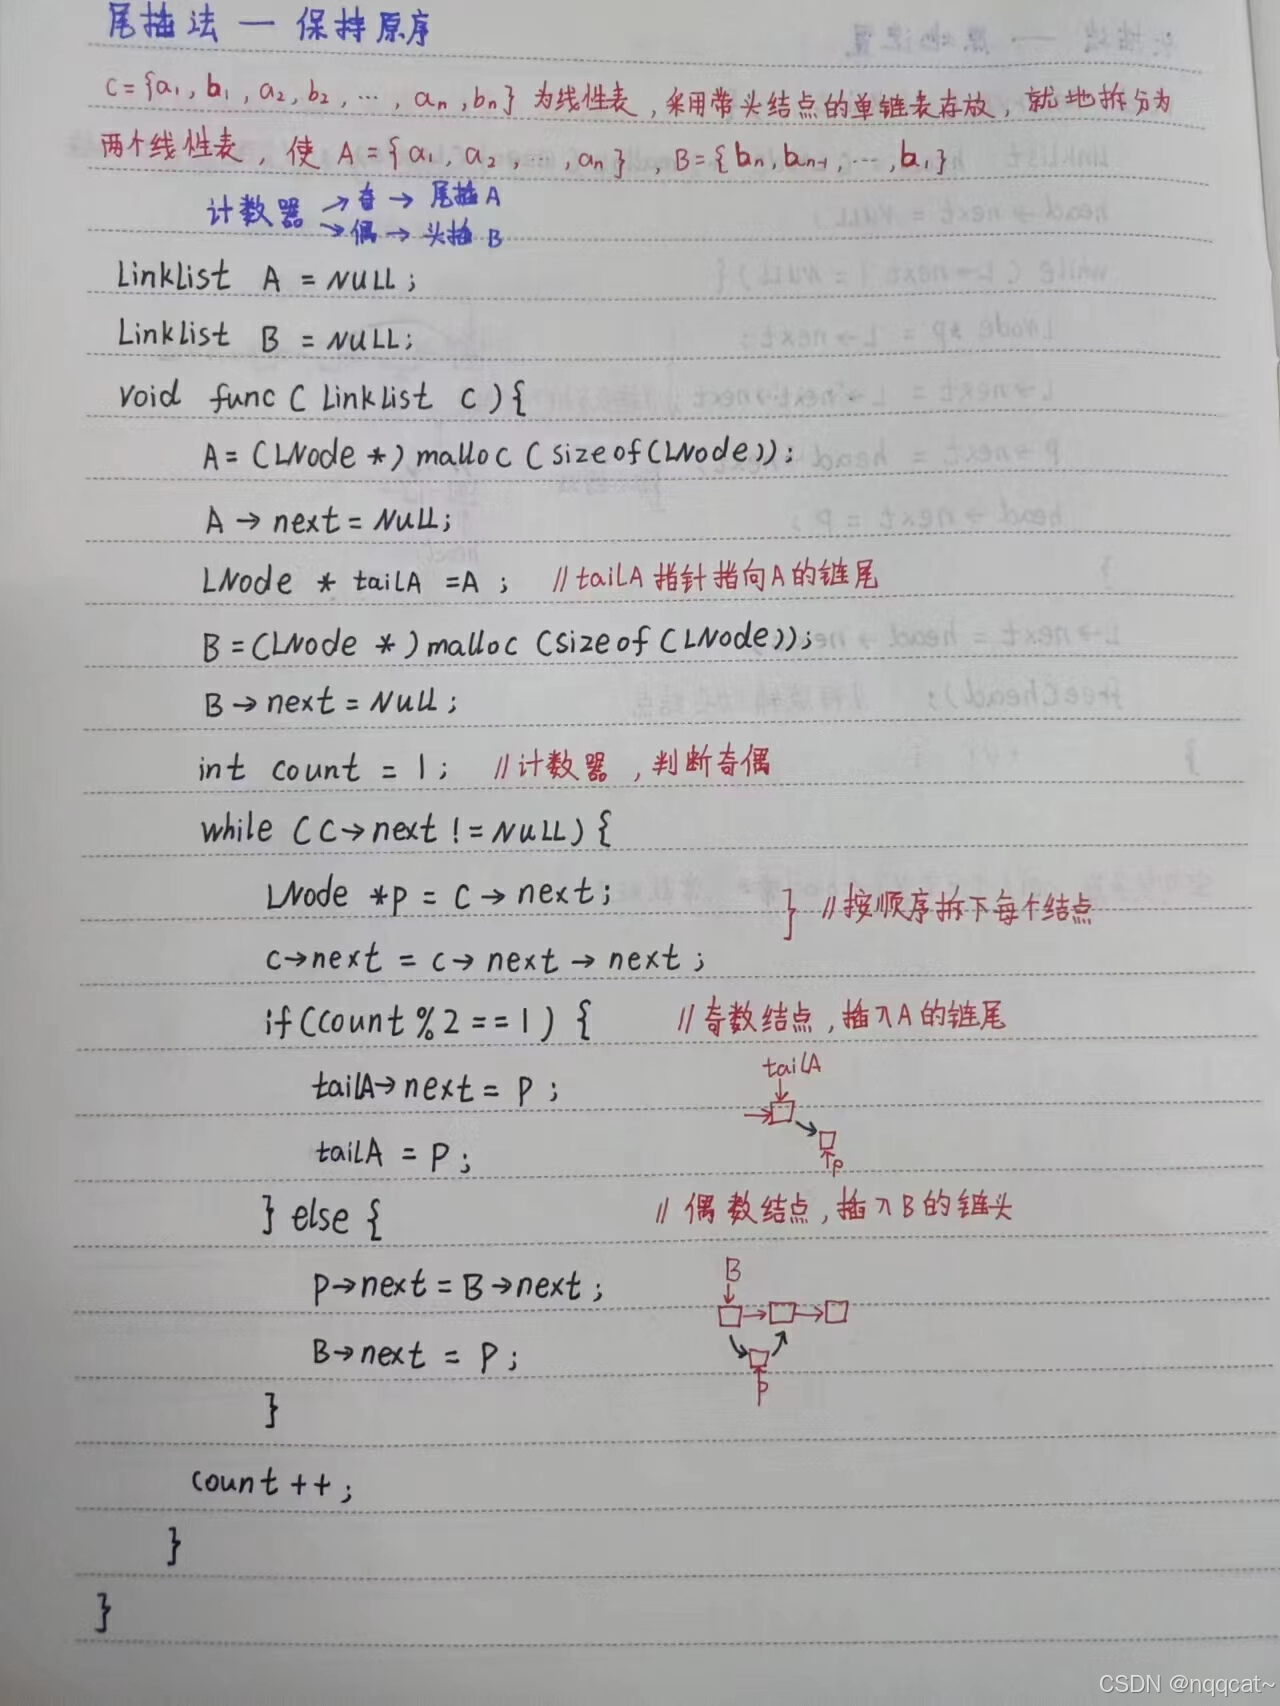 尾插法 — 保持原序
C={a₁, b₁, a₂, b₂, …, aₙ, bₙ} 为线性表，采用带头结点的单链表存放，就地拆分为
两个线性表，使 A={a₁, a₂, …, aₙ}，B={bₙ, bₙ₋₁, …, b₁}
计数器 → 奇 → 尾插A
→ 偶 → 头插B
LinkList A = NULL;
LinkList B = NULL;
void func ( LinkList C ){
A= (LNode *) malloc (sizeof(LNode));
A → next = NULL;
LNode * tailA =A ; //tailA 指针指向A的链尾
B=(LNode *) malloc (sizeof (LNode));
B→next = NULL;
int count = 1; //计数器，判断奇偶
while (C→next != NULL) {
LNode *p = C → next;
} //按顺序拆下每个结点
C→next = C→ next → next ;
if(count %2 == 1) { //奇数结点，插入A的链尾
tailA→next = p ;
tailA
tailA = p ;
p
} else { // 偶数结点，插入B的链头
B
p→next = B→next ;
B→next = p ;
p
}
count ++ ;
}
}
CSDN @nqqcat~